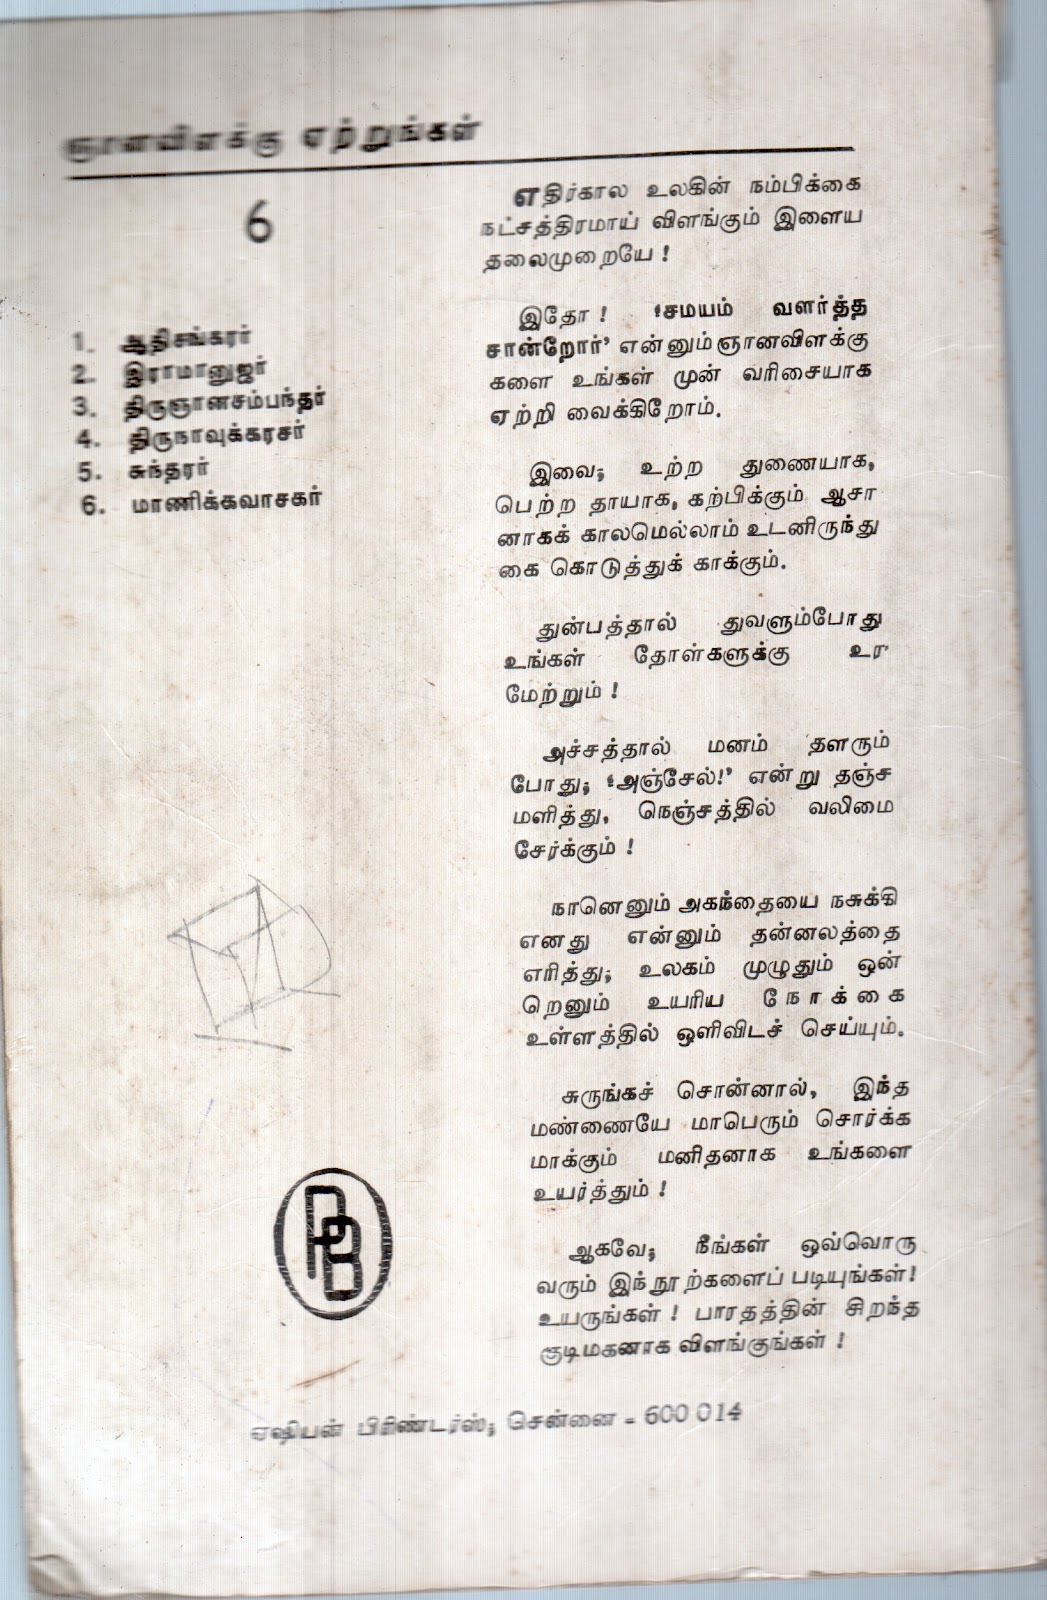 ஞானவிளக்கு ஏற்றுங்கள்
6
1. ஆதிசங்கரர்
2. இராமானுஜர்
3. திருஞானசம்பந்தர்
4. திருநாவுக்கரசர்
5. சுந்தரர்
6. மாணிக்கவாசகர்
எதிர்கால உலகின் நம்பிக்கை
நட்சத்திரமாய் விளங்கும் இளைய
தலைமுறையே !
இதோ ! 'சமயம் வளர்த்த
சான்றோர்' என்னும் ஞானவிளக்கு
களை உங்கள் முன் வரிசையாக
ஏற்றி வைக்கிறோம்.
இவை; உற்ற துணையாக,
பெற்ற தாயாக, கற்பிக்கும் ஆசா
னாகக் காலமெல்லாம் உடனிருந்து
கை கொடுத்துக் காக்கும்.
துன்பத்தால் துவளும்போது
உங்கள் தோள்களுக்கு உர
மேற்றும் !
அச்சத்தால் மனம் தளரும்
போது; 'அஞ்சேல்!' என்று தஞ்ச
மளித்து, நெஞ்சத்தில் வலிமை
சேர்க்கும் !
நானெனும் அகந்தையை நசுக்கி
எனது என்னும் தன்னலத்தை
எரித்து; உலகம் முழுதும் ஒன்
றெனும் உயரிய நோக்கை
உள்ளத்தில் ஒளிவிடச் செய்யும்.
சுருங்கச் சொன்னால், இந்த
மண்ணையே மாபெரும் சொர்க்க
மாக்கும் மனிதனாக உங்களை
உயர்த்தும் !
ஆகவே; நீங்கள் ஒவ்வொரு
வரும் இந்நூற்களைப் படியுங்கள்!
உயருங்கள் ! பாரதத்தின் சிறந்த
குடிமகனாக விளங்குங்கள் !
PB
ஏஷியன் பிரிண்டர்ஸ்; சென்னை - 600 014